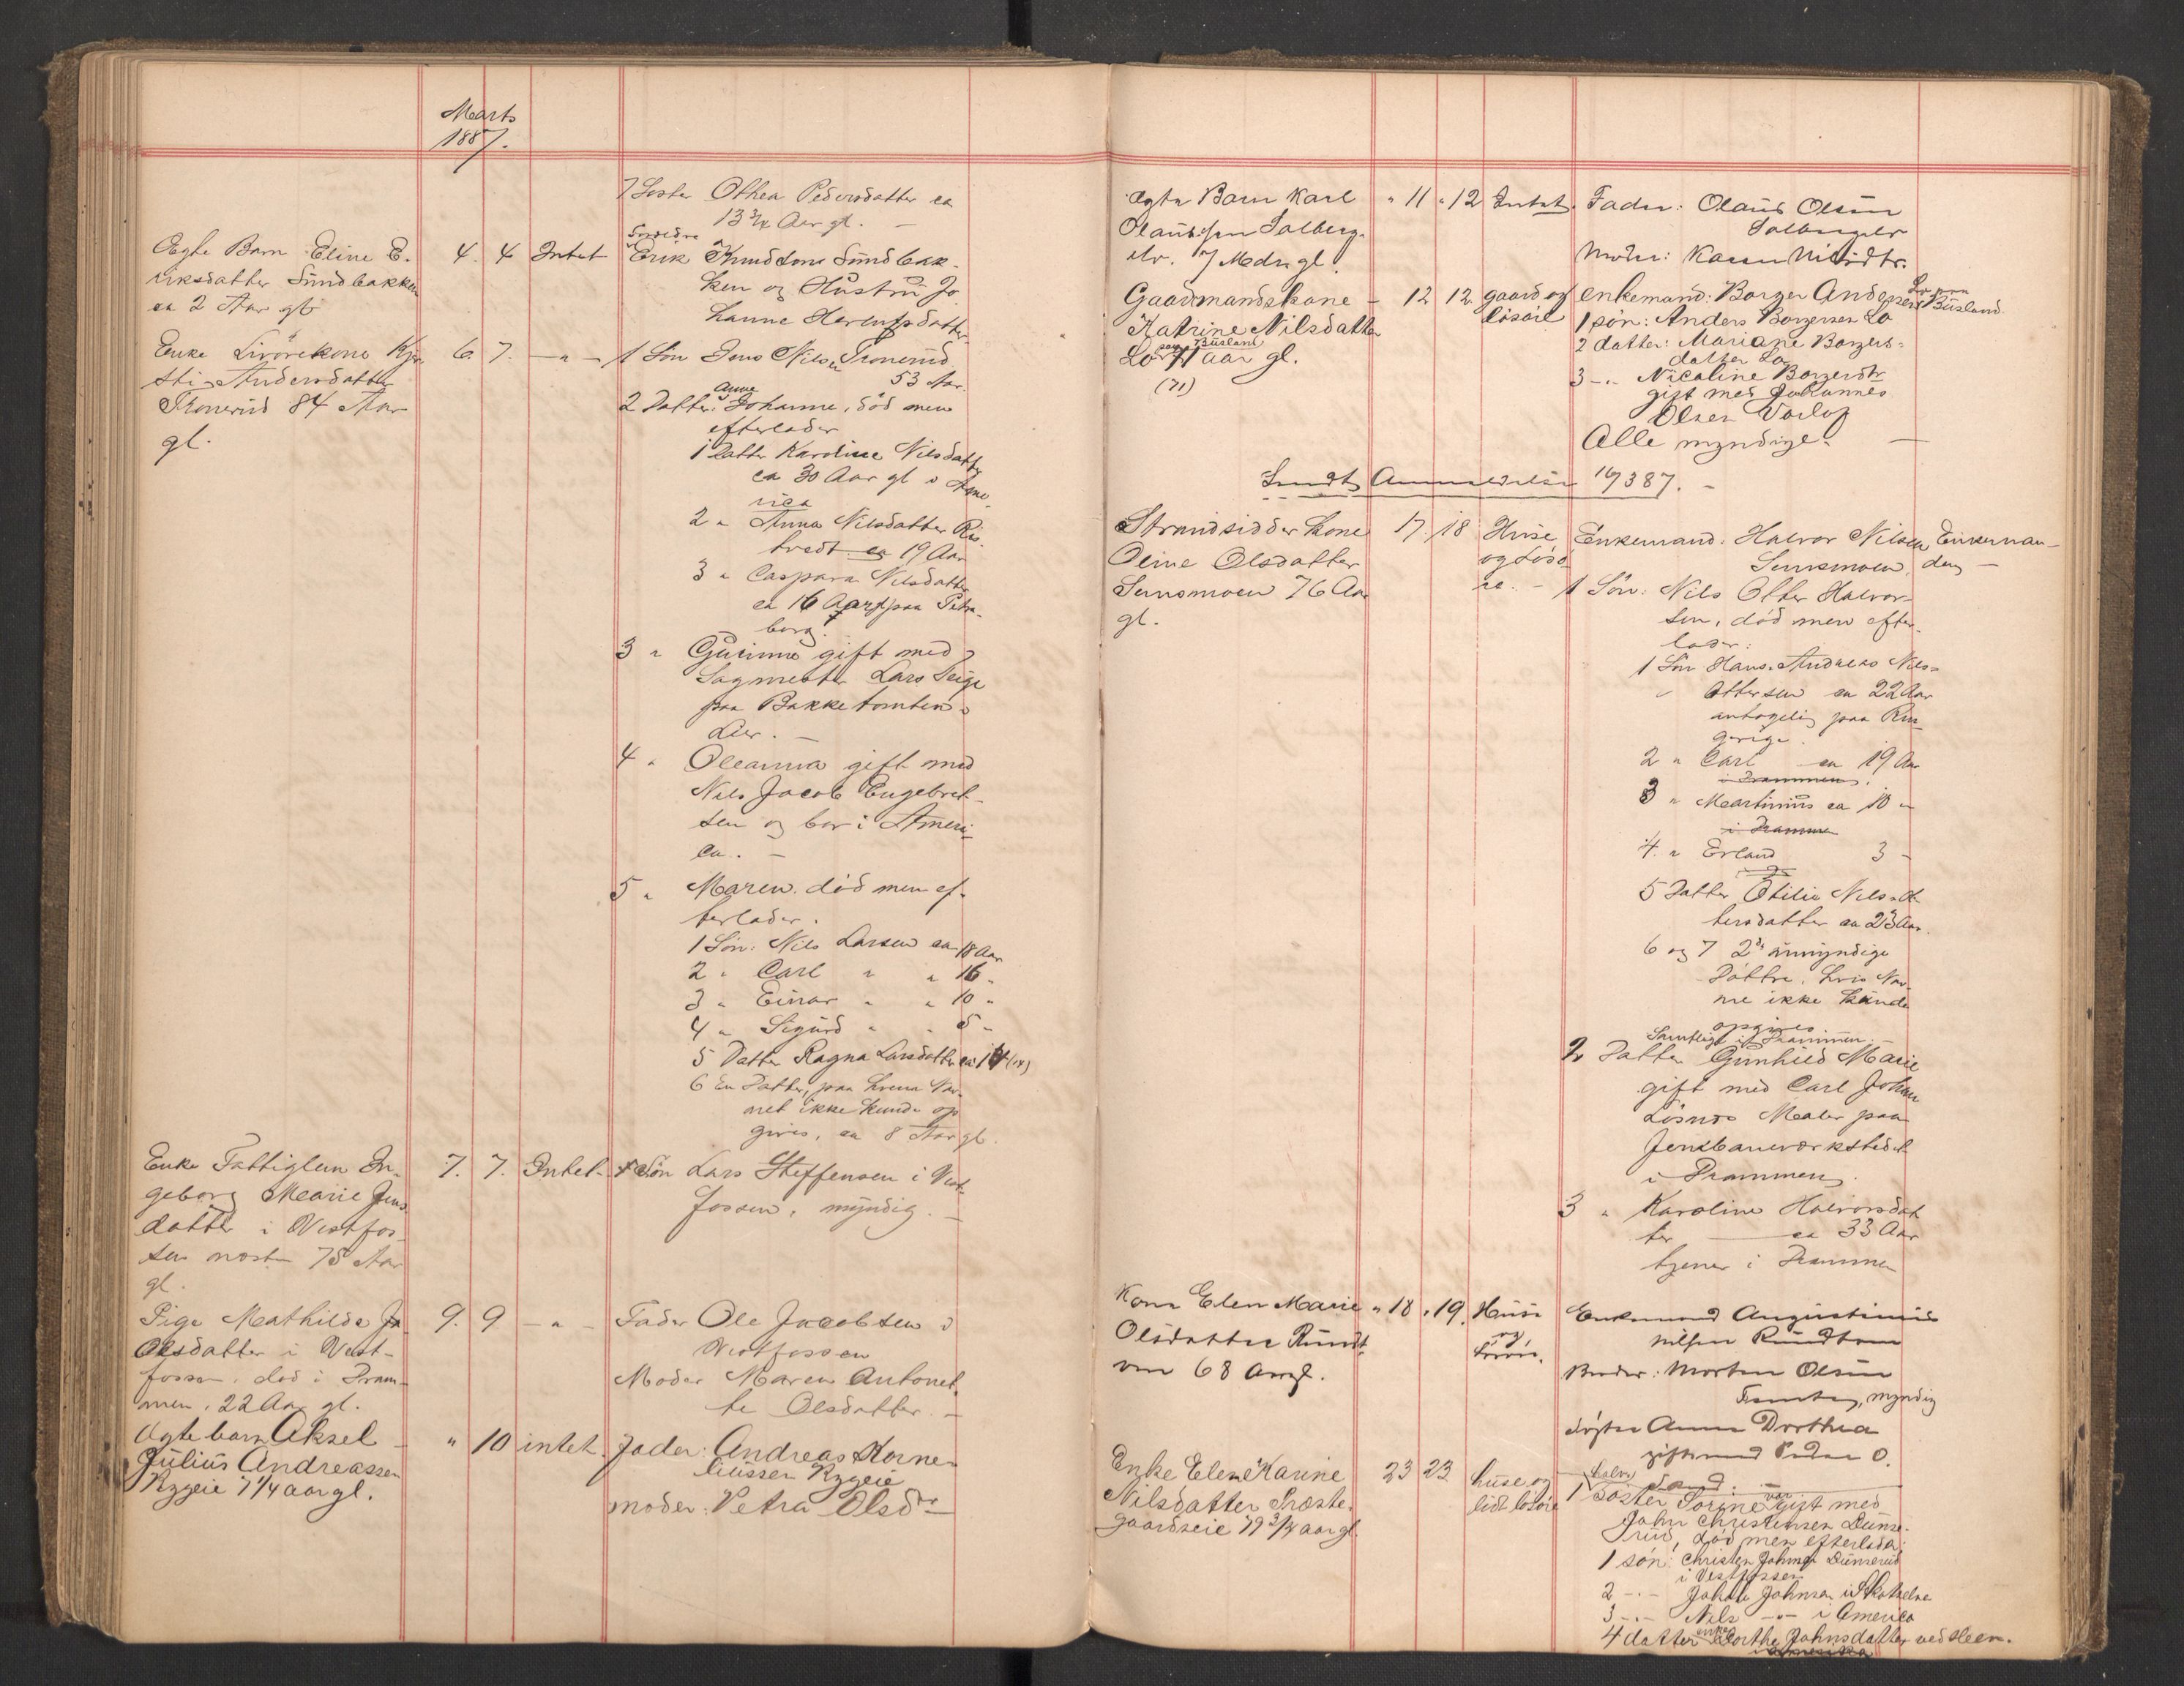 Marts
1887.
7 Søster Othea Pedersdatter ca
13 3/4 Aar gl. —
Ægte Barn Eline E-
riksdatter Sundbakken
ca 2 Aar gl
4. 4 Intet
Forældre
Erik Knudsens Sundbak-
ken og Hustru Jo
hanne
Enke Livørekone Kjer
sti Andersdatter
Tronerud 84 Aar
gl.
6. 7. - " -
1 Søn Jens Nilsen Tronerud
53 Aar
2 Datter: Anne Johanne, død men
efterlader
1 Datter Karoline Nilsdatter
ca 30 Aar gl i Ame
rica
2 " Anna Nilsdatter Ris-
bredt ca 19 Aar
3 " Caspara Nilsdatter
ca 16 Aar gl paa Peters-
borg.
3 " Gurine gift med
Sagmester Lars Seige
paa Bakketomten i
Lier. —
4 " Oleanna gift med
Nils Jacob Engebret-
sen og bor i Ameri-
ca. —
5 " Maren. død men ef-
terlader.
1 Søn: Nils Larsen ca 18 Aar
2 " Carl " " 16 "
3 " Einar " " 10 "
4 " Sigurd " " 5 "
5 Datter Ragna Larsdatter ca 14 (14)
6 En Datter, paa hvem Nav-
net ikke kunde op
gives, ca 8 Aar gl.
Enke Fattiglem In-
geborg Marie Jens
datter i Vestfos-
sen næsten 75 Aar
gl.
7. 7. Intet
1 Søn Lars Steffensen i Vest-
fossen, myndig. —
Pige Mathilde Jo
Olsdatter i Vest-
fossen, død i Dram-
men, 22 Aar gl.
9. 9 - " -
Fader Ole Jacobsen i
Vestfossen
Moder Maren Antonet-
te Olsdatter. —
Ægte barn Aksel
Julius Andreassen
Ryggeie 7 1/4 aar gl.
" 10 intet.
Fader: Andreas Korne-
liussen Ryggeie
moder: Petra Olsdtr
Ægte Barn Karl
Olaussen Solberg-
elv. 7 Mdr gl.
" 11 " 12 Intet.
Fader: Olaus Olsen
Solbergelv
Moder: Karen Nilsdtr.
Gaardmandskone -
Katrine Nilsdatter
Lo paa Busland 71 aar gl.
(71)
12 12 gaard og
løsøre
enkemand: Borger Andersen Lo paa
Busland
1 søn: Anders Borgersen Lo
2 datter: Mariane Borgers-
datter Lo
3 - " - Nicoline Borgersdtr
gift med Johannes
Olsen Varlo
Alle myndige. —
Sendt Anmeldelse 16/3 87. -
Strandsidder kone
Oline Olsdatter
Semsmoen 76 Aar
gl.
17. 18 Huse
og Løsø
re. -
Enkemand: Halvor Nilsen
Semsmoen,
Enkeman-
den —
1 Søn: Nils Otter Halvor-
sen, død men efter-
lader:
1 Søn Hans Andreas Nils-
Ottersen ca 22 Aar
antagelig paa Rin-
gerige.
2 " Carl ca 19 Aar
i Drammen.
3 " Martinius ca 10 "
i Drammen
4. " Erland 3 -
5 Datter Otilie Nils-Ot-
tersdatter ca 23 Aar.
6 og 7 2de umyndige
Døttre, hvis Nav-
ne ikke kunde
opgives.
Samtlige i Drammen. -
2 Datter Gunhild Marie
gift med Carl Johan
Løsnæs Maler paa
Jernbaneværkstedet
i Drammen.
3 " Karoline Halvorsdat
ter — ca 33 Aar
tjener i Drammen
Kone Elen Marie
Olsdatter Rundt-
om 68 Aar gl.
" 18 " 19. Huse
og
Løsøre.
Enkemand Augustinius
Nilsen Rundtom
Broder: Morten Olsen
myndig
Søster Anne Dorthea
gift med Peder O.
Enke Elen Karine
Nilsdatter Præste-
gaardseie 79 3/4 aar gl.
23 23 huse og
lidt løsøre
1 halv søster Sorine var gift med
John Christensen Dunse-
rud, død men efterlader:
1 søn: Christen Johnsen Dunserud
i Vestfossen
2 - " - Johan Johnsen i Skotselven
3 - " - Nils - " - i Amerika
4 datter enke Dorthe Johnsdatter ved Heen.
i Amerika